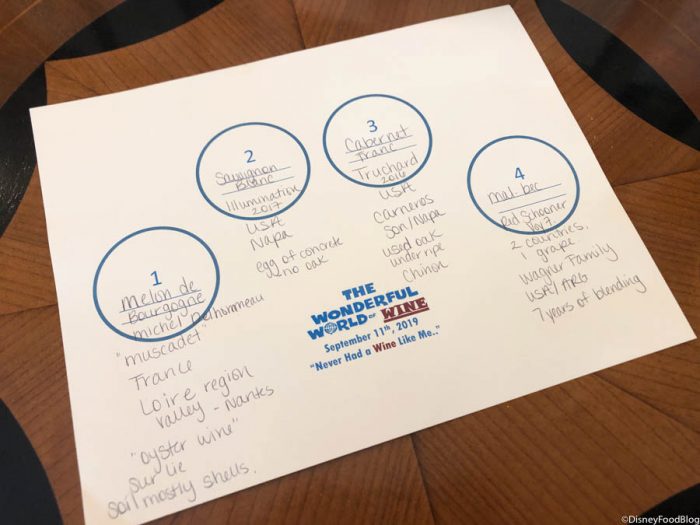 1
Melon de
Bourgogne
michel Delhommeau
"muscadet"
France
Loire region
valley - Nantes
"oyster wine"
sur lie
soil mostly shells.
2
Sauvignon
Blanc
Illumination
2017
USA
Napa
egg of concrete
no oak
3
Cabernet
Franc
Truchard
2016
USA
Carneros
Son/Napa
used oak
underripe
Chinon
4
mal bec
Red Schooner
Voy 7.
2 countries,
1 grape.
Wagner Family
USA/ARG
7 years of blending
THE
WONDERFUL
WORLD OF WINE
September 11th, 2019
"Never Had a Wine Like Me.."
©DisneyFoodBlog